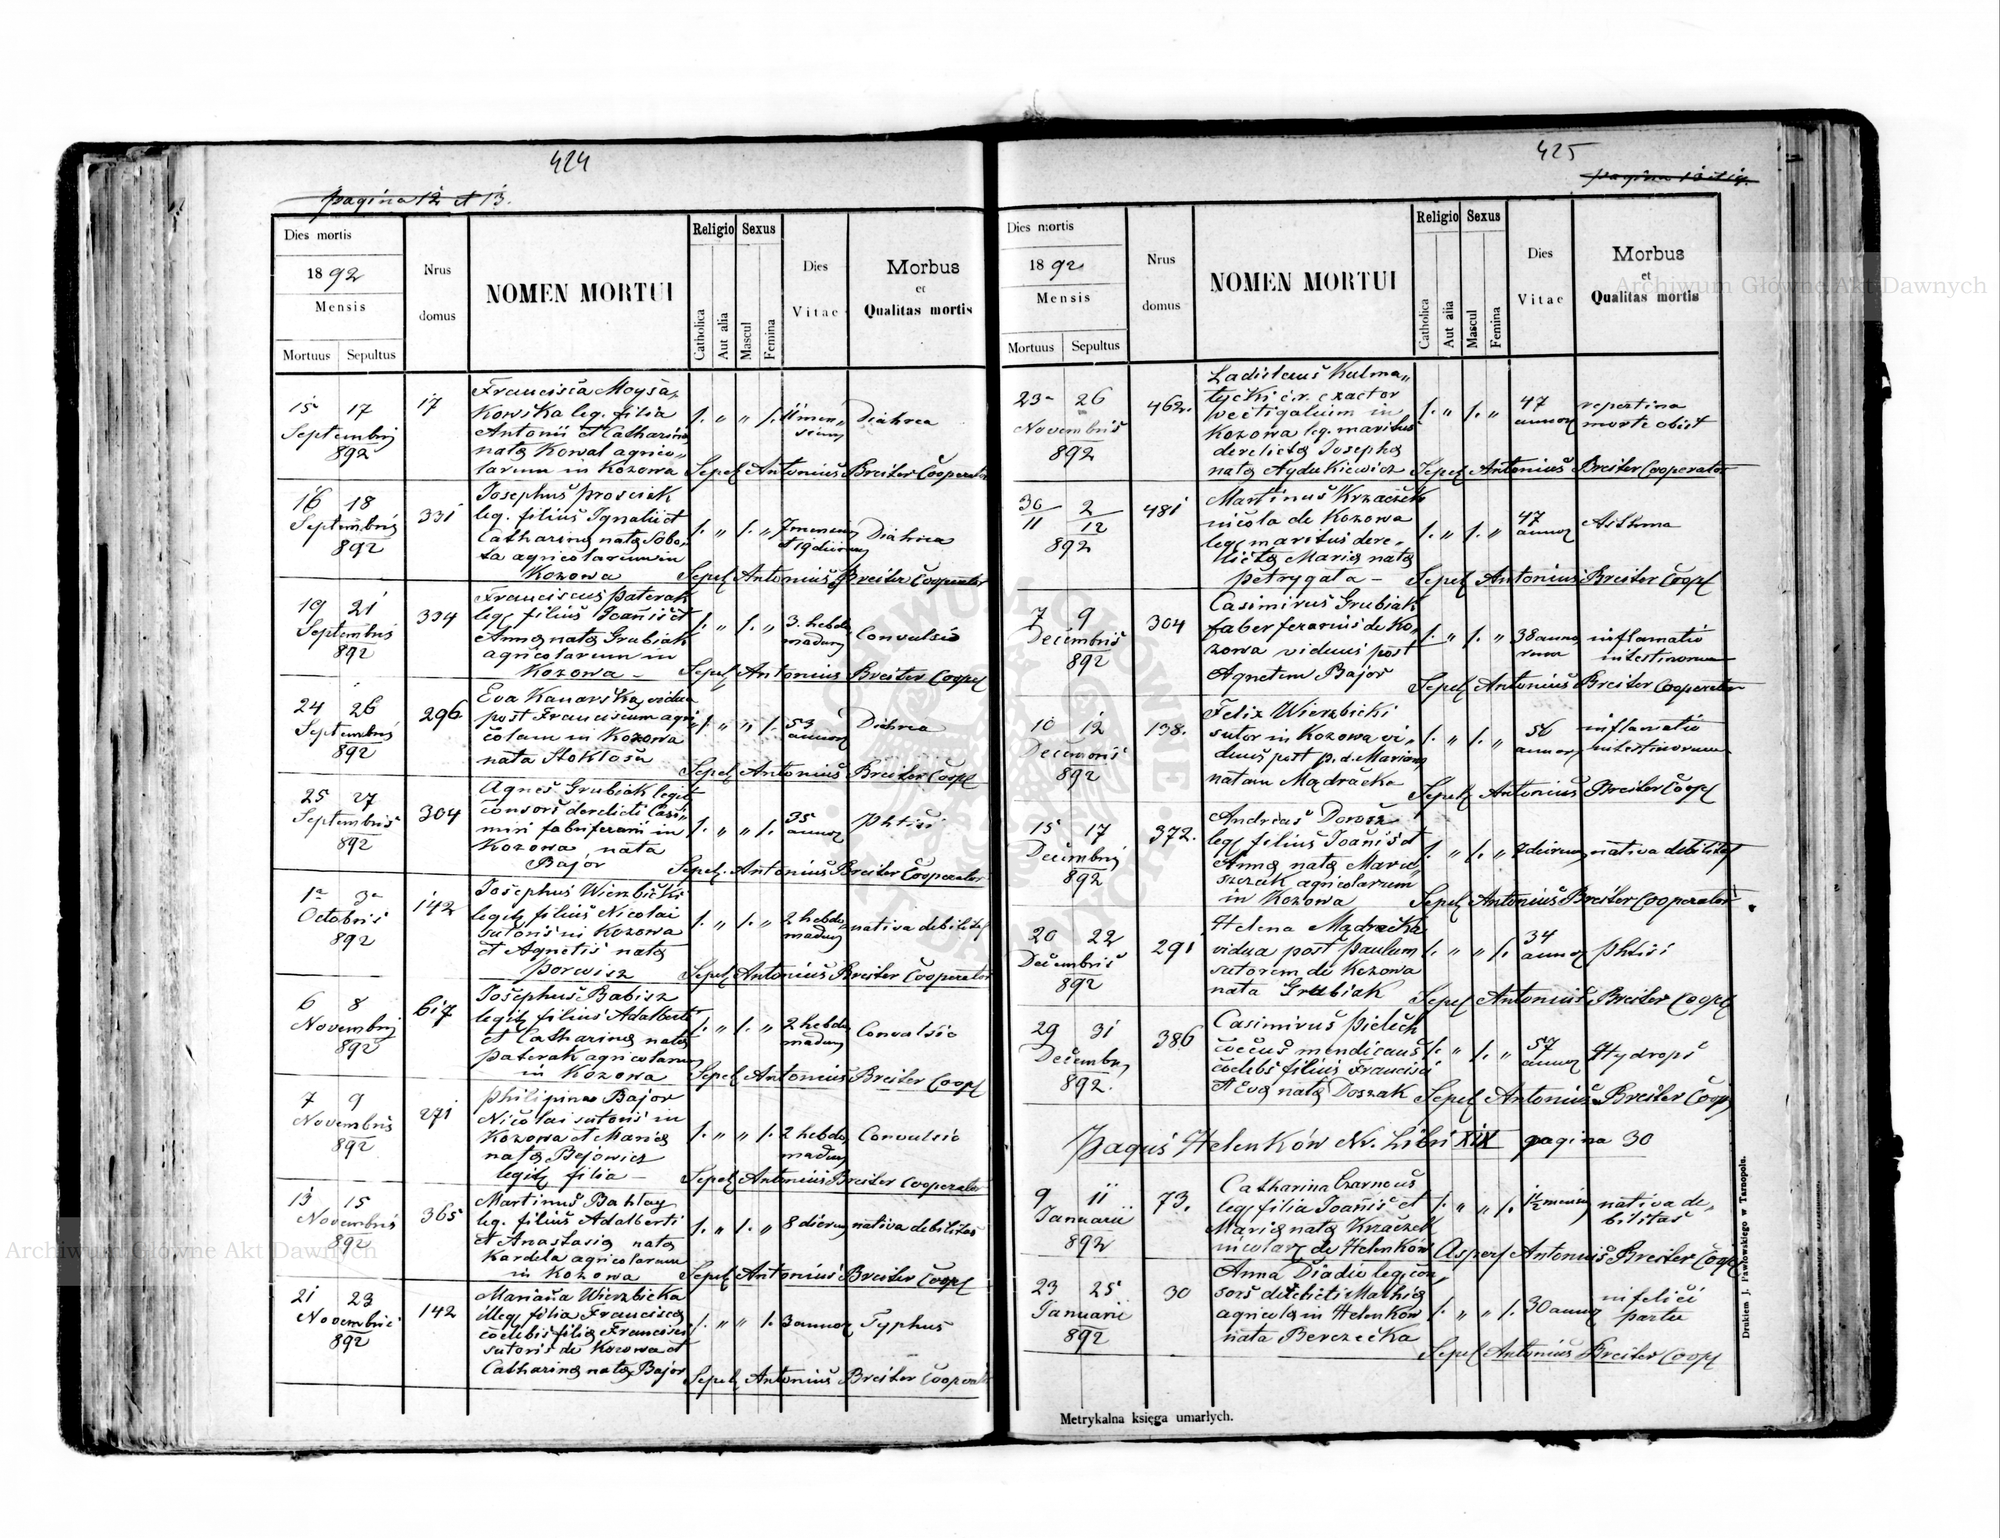 424
pagina 12 et 13.
Dies mortis
1892
Mensis
Mortuus Sepultus
Nrus domus
NOMEN MORTUI
Religio
Catholica
Aut alia
Sexus
Mascul
Femina
Dies Vitae
Morbus
et
Qualitas mortis
15 17
Septembris
892
17
Francisca Moysa,
kowska leg. filia
Antonii et Catharina
nata Kowal agrico„
larum in Kozowa
1. „ „ 1.
11 men„
sium
Diahrea
Sepel Antonius Breiter Cooperator
16 18
Septembris
892
331
Josephus Prosciak
leg. filius Ignatii et
Catharina nata Sobo„
ta agricolarum in
Kozowa
1. „ 1. „
7 mensium
et 19 dierum
Diahrea
Sepel Antonius Breiter Cooperator
19 21
Septembris
892
334
Franciscus Paterak
leg filius Joannis et
Anna nata Grubiak
agricolarum in
Kozowa –
1. „ 1. „
3. hebdo
madum
Convulsio
Sepel Antonius Breiter Coopl
24 26
Septembris
892
296
Eva Kanarska, vidua
post Franciscum agri
colam in Kozowa
nata Stoktosa
1. „ „ 1.
53
annorum
Diahrea
Sepel Antonius Breiter Coopl
25 27
Septembris
892
304
Agnes Grubiak legit
consors derelicti Casi„
miri fabri ferarii in
Kozowa nata
Bajor
1. „ „ 1.
35
annorum
Phtisi
Sepel. Antonius Breiter Cooperator
1a 3a
Octobris
892
142
Josephus Wierzbicki
legit filius Nicolai
sutoris in Kozowa
et Agnetis nata
Porwisz
1. „ 1. „
2 hebdo
madum
nativa debilitas
Sepel Antonius Breiter Cooperator
6 8
Novembris
892
617
Josephus Babisz
legit filius Adalberti
et Catharina nata
Paterak agricolarum
in Kozowa
1. „ 1. „
2 hebdo
madum
Convulsio
Sepel Antonius Breiter Coopl
7 9
Novembris
892
271
Philipina Bajor
Nicolai sutoris in
Kozowa et Maria
nata Bejowicz
legit filia –
1. „ „ 1.
2 hebdo,
madum
Convulsio
Sepel Antonius Breiter Cooperator
13 15
Novembris
892
365
Martinus Bahlay
leg. filius Adalberti
et Anastasia nata
Kardela agricolarum
in Kozowa
1. „ 1. „
8 dierum
nativa debilitas
Sepel Antonius Breiter Coopl
21 23
Novembris
892
142
Mariana Wierzbicka
illeg filia Francisca
coelebis filia Francisci
sutoris de Kozowa et
Catharina nata Bajor
1. „ „ 1.
3 annor
Typhus
Sepel Antonius Breiter Cooperator
425
Dies mortis
1892
Mensis
Mortuus Sepultus
Nrus domus
NOMEN MORTUI
Religio
Catholica
Aut alia
Sexus
Mascul
Femina
Dies Vitae
Morbus
et
Qualitas mortis
23a 26
Novembris
892
462.
Ladislaus Kulma„
tycki c.r. exactor
vectigalium in
Kozowa leg. maritus
derelicta Josepha
nata Aydukiewicz
1. „ 1. „
47
annor
repentina
morte obiit
Sepel Antonius Breiter Cooperator
30/11 2/12
892
481
Martinus Krzaczek
nicola de Kozowa
leg maritus dere„
licta Maria nata
Petrygata –
1. „ 1. „
47
annor
Asthma
Sepel Antonius Breiter Coopl
7 9
Decembris
892
304
Casimirus Grubiak
faber ferarius de Ko„
zowa viduus post
Agnetem Bajor
1. „ 1. „
38 anno
rum
inflamatio
intestinorum
Sepel Antonius Breiter Cooperator
10 12
Decembris
892
138.
Felix Wierzbicki
sutor in Kozowa vi„
duus post p.d. Mariam
natam Mądracka
1. „ 1. „
56
annor
inflamatio
intestinorum
Sepel Antonius Breiter Coopl
15 17
Decembris
892
372.
Andreas Dorosz
leg filius Joannis et
Anna nata Maru„
szczak agricolarum
in Kozowa
1. „ 1. „
7 dierum
nativa debilitas
Sepel Antonius Breiter Cooperator
20 22
Decembris
892
291
Helena Mądracka
vidua post Paulum
sutorem de Kozowa
nata Grubiak
1. „ „ 1.
34
annor
Phtisi
Sepel Antonius Breiter Coopl
29 31
Decembr,
892.
386
Casimirus Pielech
coecus mendicans
coelebs filius Francisci
et Eva nata Doszak
1. „ 1. „
57
annor
Hydrops
Sepel Antonius Breiter Coopl
Pagus Helenków Nr. Libri XIX pagina 30
9 11
Januarii
892
73.
Catharina Czarnous
leg filia Joannis et
Maria nata Krzaczek
nicolar de Helenków
1. „ „ 1.
1½ mensium
nativa de„
bilitas
Aspers Antonius Breiter Coopl
23 25
Januarii
892
30
Anna Diadio leg con„
sors derelicti Mathia
agricola in Helenków
nata Berezecka
1. „ „ 1.
30 annor
infelici
partu
Sepel Antonius Breiter Coopl
Metrykalna księga umarłych.
Drukiem J. Pawłowskiego w Tarnopolu.
Archiwum Główne Akt Dawnych
Archiwum Główne Akt Dawnych
ARCHIWUM GŁÓWNE AKT DAWNYCH